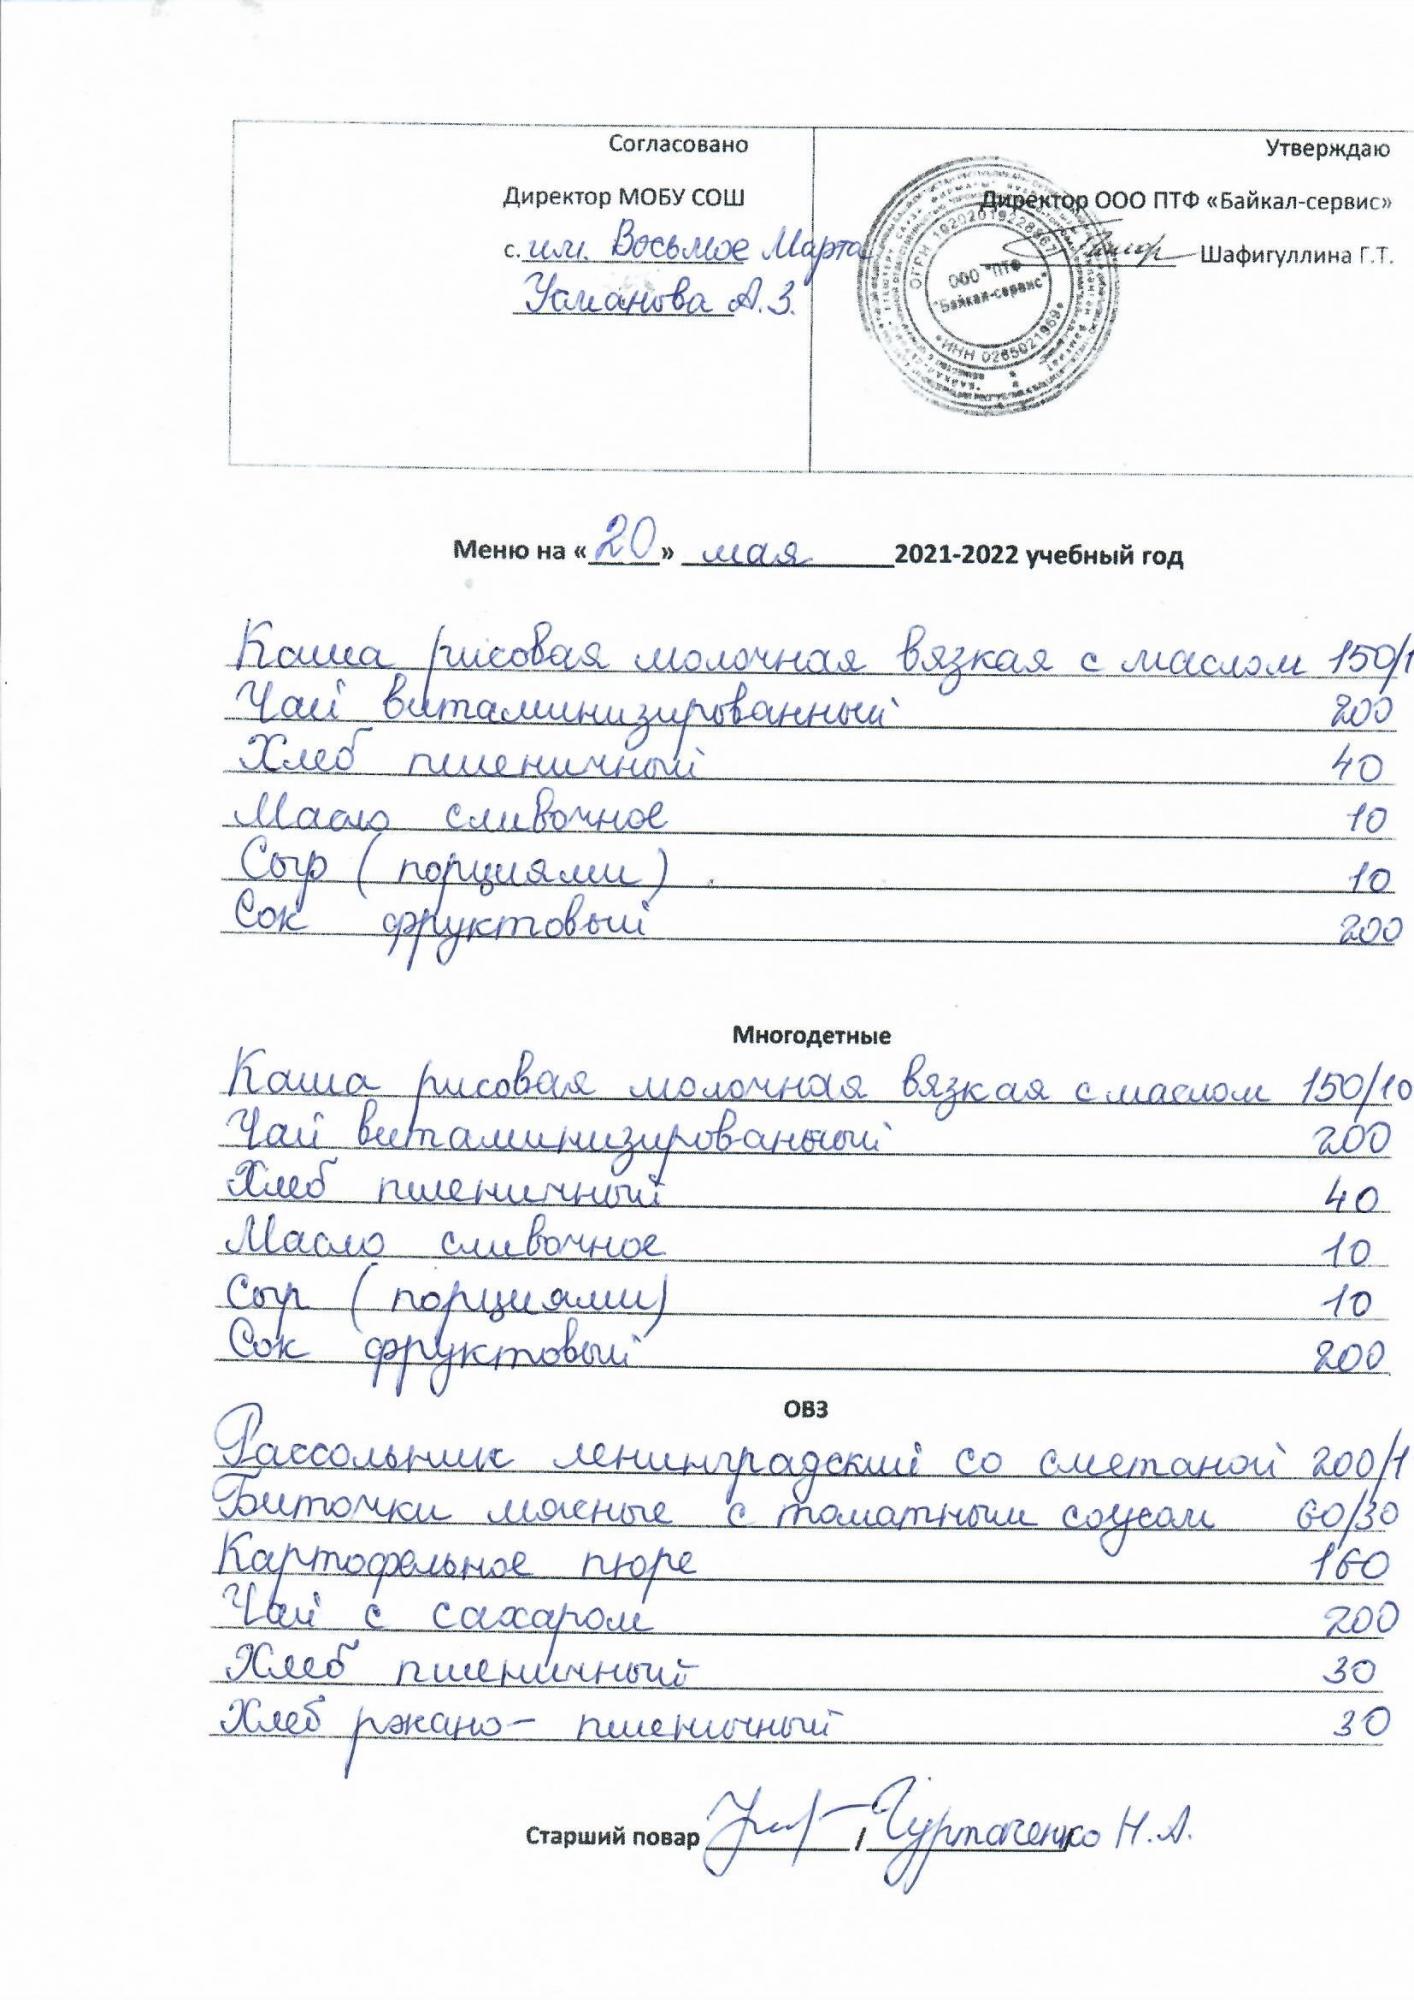 Согласовано
Директор МОБУ СОШ
с. им. Восьмое Марта
Усманова А.З.
Утверждаю
Директор ООО ПТФ «Байкал-сервис»
Шафигуллина Г.Т.
ООО "ПТФ
"Байкал-сервис"
ИНН 0265021969
Меню на «20» мая 2021-2022 учебный год
Каша рисовая молочная вязкая с маслом 150/1
Чай витаминизированный 200
Хлеб пшеничный 40
Масло сливочное 10
Сыр (порциями) 10
Сок фруктовый 200
Многодетные
Каша рисовая молочная вязкая с маслом 150/10
Чай витаминизированный 200
Хлеб пшеничный 40
Масло сливочное 10
Сыр (порциями) 10
Сок фруктовый 200
ОВЗ
Рассольник ленинградский со сметаной 200/1
Биточки мясные с томатным соусом 60/30
Картофельное пюре 160
Чай с сахаром 200
Хлеб пшеничный 30
Хлеб ржано- пшеничный 30
Старший повар / Н.А.